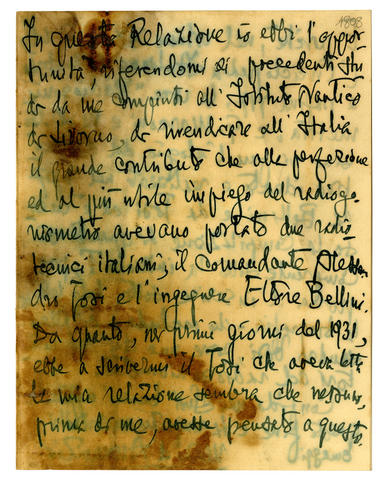 1898
In questa Relazione io ebbi l'oppor
tunità, riferendomi ai precedenti stu
di da me compiuti all'Istituto Nautico
di Livorno, di rivendicare all'Italia
il grande contributo che alla perfezione
ed al più utile impiego del radiogo
niometro avevano portato due radio
tecnici italiani, il comandante Alessan
dro Tosi e l'ingegnere Ettore Bellini.
Da quanto, nei primi giorni del 1931,
ebbe a scrivermi il Tosi che aveva letto
la mia relazione sembra che nessuno,
prima di me, avesse pensato a questo.